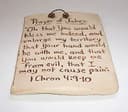 Prayer of Jabez
"Oh that You would
bless me indeed, and
enlarge my territory
that Your hand would
be with me, and that
You would keep me
from evil, that I
may not cause pain"
I Chron 4:9-10